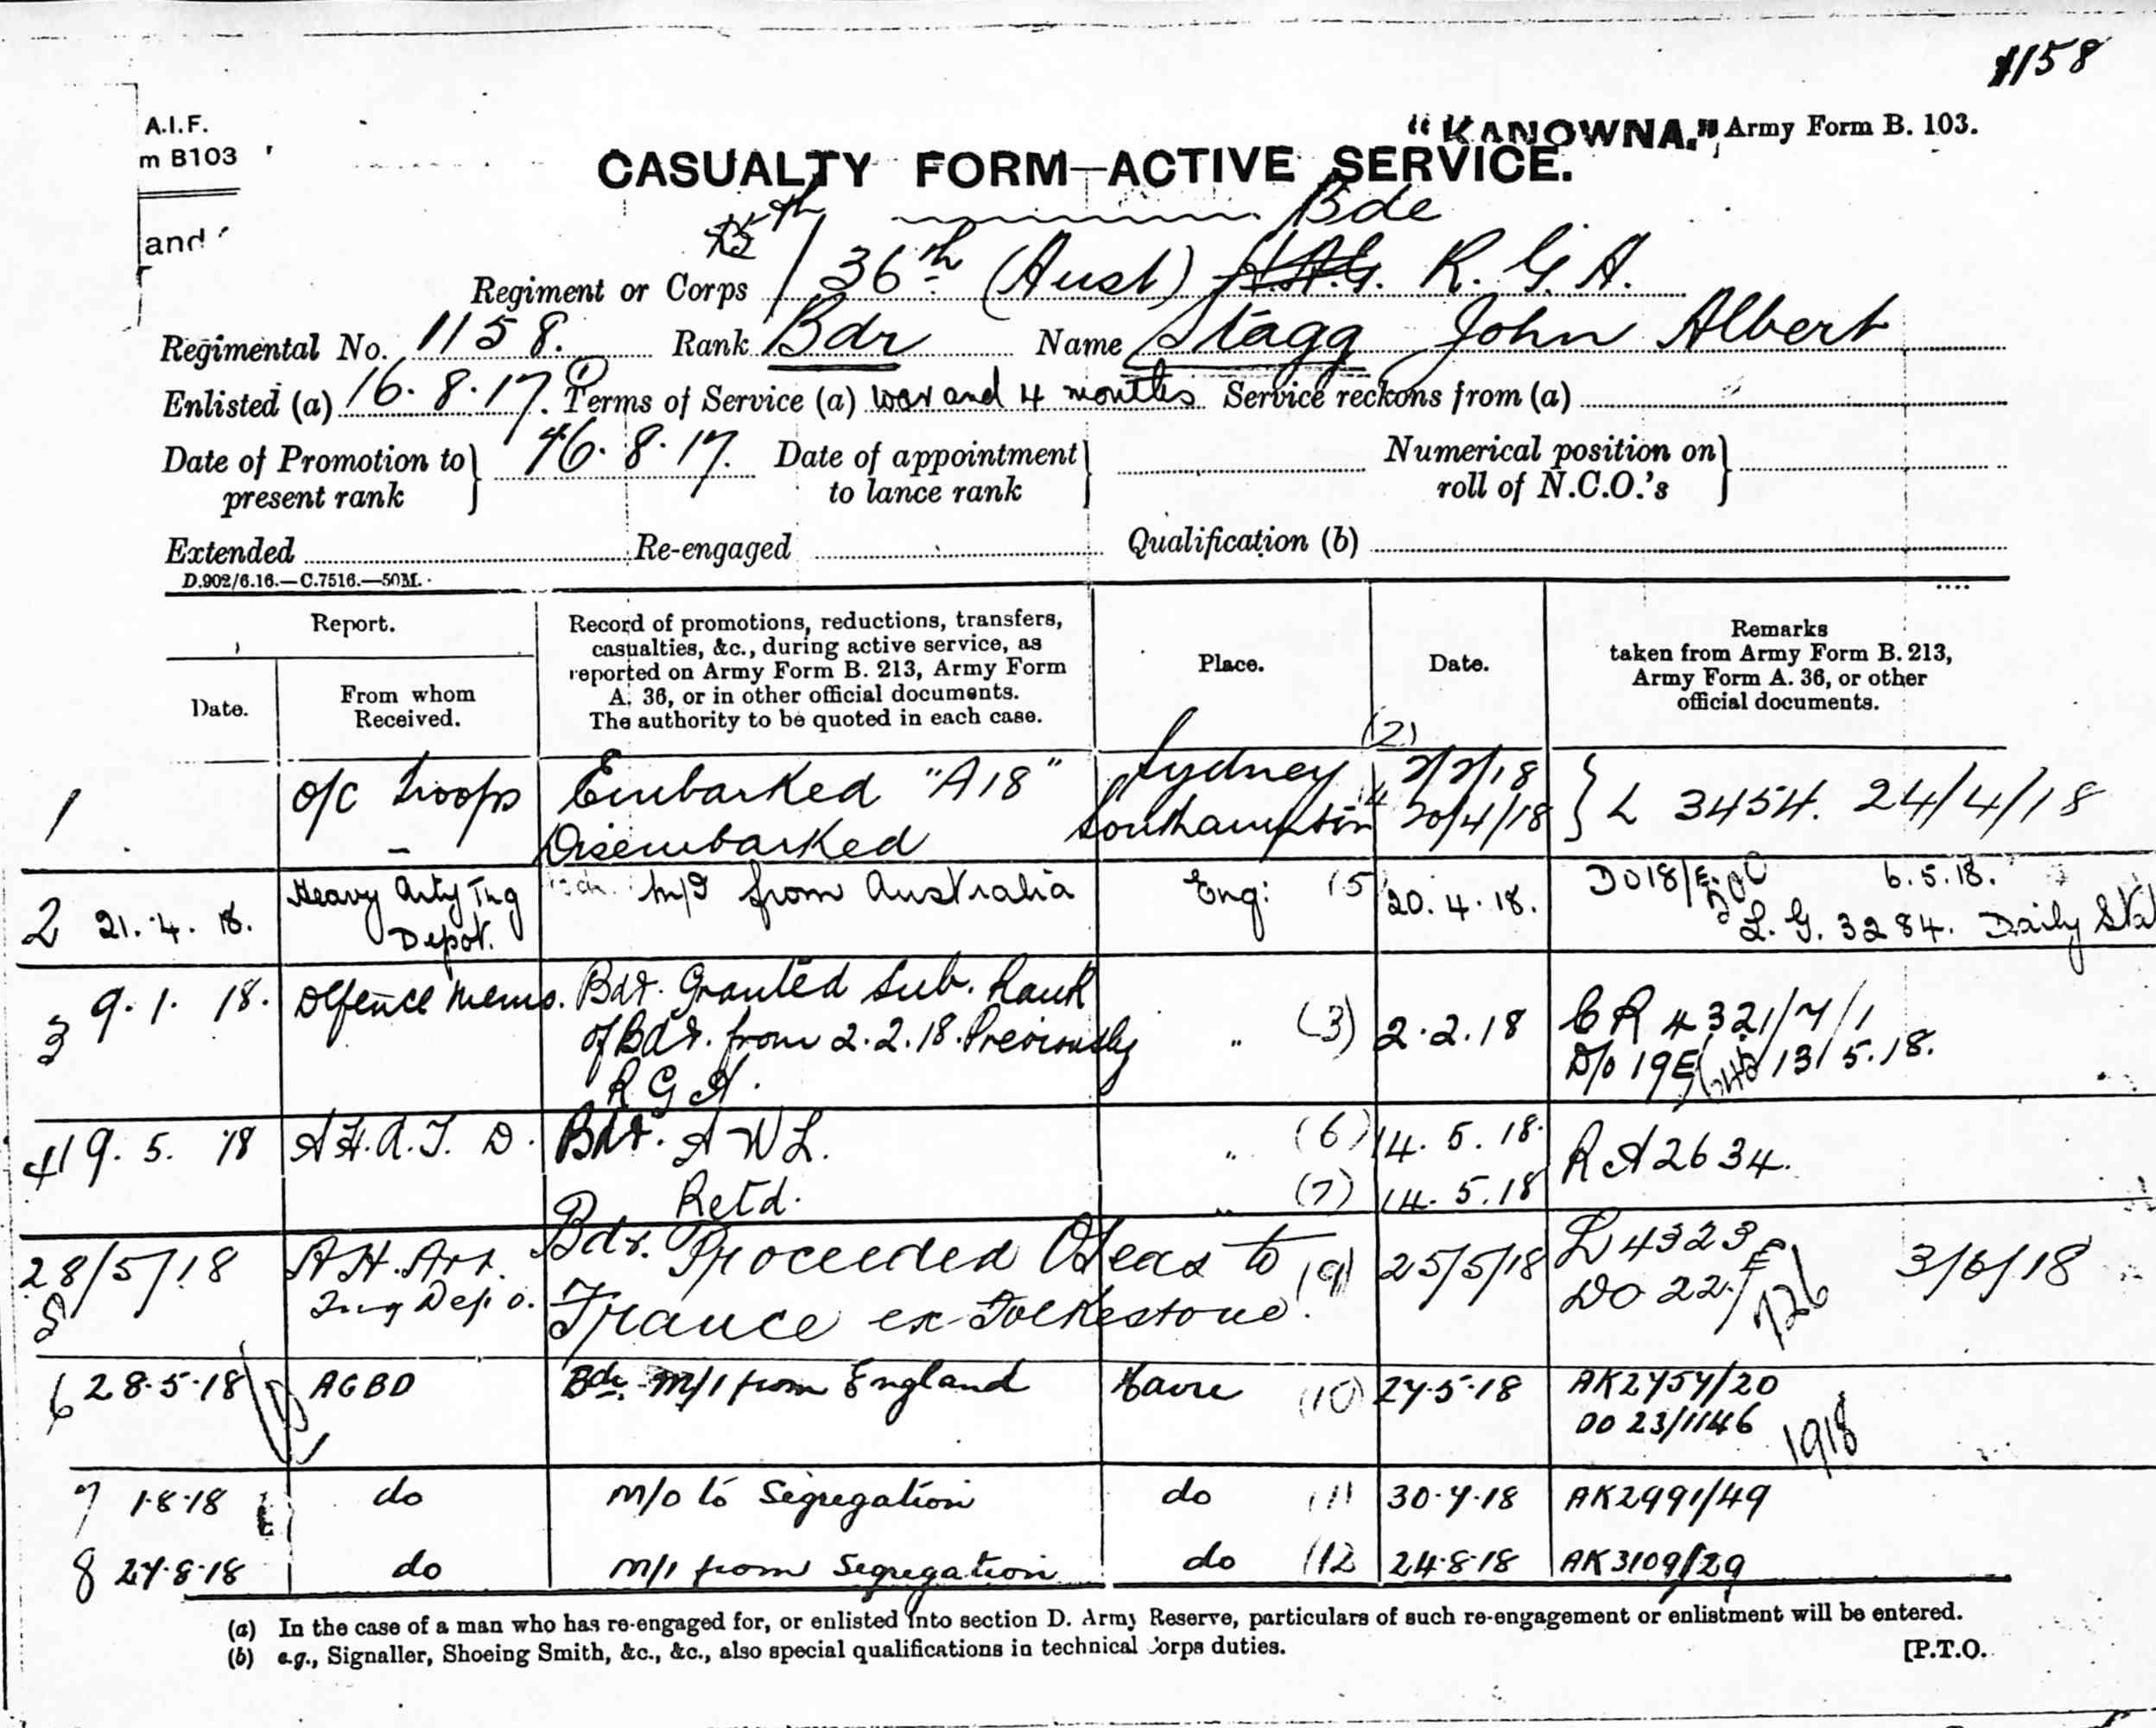 1158
A.I.F.
m B103
and
"KANOWNA." Army Form B. 103.
CASUALTY FORM—ACTIVE SERVICE.
Bde
Regiment or Corps 36th (Aust) H.A.G. R. G. A.
Regimental No. 1158. Rank Bdr Name Stagg John Albert
Enlisted (a) 16.8.17. (1) Terms of Service (a) war and 4 months Service reckons from (a)
Date of Promotion to present rank } 16.8.17. Date of appointment to lance rank } Numerical position on roll of N.C.O.'s }
Extended Re-engaged Qualification (b)
D.902/6.16.—C.7516.—50M.
Report.
Date.
From whom Received.
Record of promotions, reductions, transfers,
casualties, &c., during active service, as
reported on Army Form B. 213, Army Form
A. 36, or in other official documents.
The authority to be quoted in each case.
Place.
Date.
Remarks
taken from Army Form B. 213,
Army Form A. 36, or other
official documents.
(2)
1 O/C Troops Embarked "A18" Sydney 2/2/18
Disembarked Southampton 20/4/18 } L 3454. 24/4/18
2 21.4.18. Heavy Arty Tng Depot. M/I from Australia Eng: (5 20.4.18. DO18/E. 6.5.18.
L. G. 3284. Daily Sta
3 9.1.18. Defence Memo. Bdr. Granted Sub. Rank
of Bdr. from 2.2.18. Previously " (3) 2.2.18 CR 4321/7/1
R G A. D/o 19E 13/5.18.
4 19.5.18 A H.A.T. D. Bdr. A W L. " (6) 14.5.18. R A 2634.
Retd. " (7) 14.5.18
5 28/5/18 A H. Art. Bdr. Proceeded O'Seas to (9) 25/5/18 L 4323
Tng Depo. France ex Folkestone. DO 22/E 726 3/6/18
6 28.5.18 AGBD Bdr. M/I from England Havre (10) 27.5.18 AK2757/20
DO 23/1146 1918
7 1.8.18 do M/O to Segregation do (11 30.7.18 AK2991/49
8 27.8.18 do M/I from Segregation do (12 24.8.18 AK3109/29
(a) In the case of a man who has re-engaged for, or enlisted into section D. Army Reserve, particulars of such re-engagement or enlistment will be entered.
(b) e.g., Signaller, Shoeing Smith, &c., &c., also special qualifications in technical Corps duties. [P.T.O.